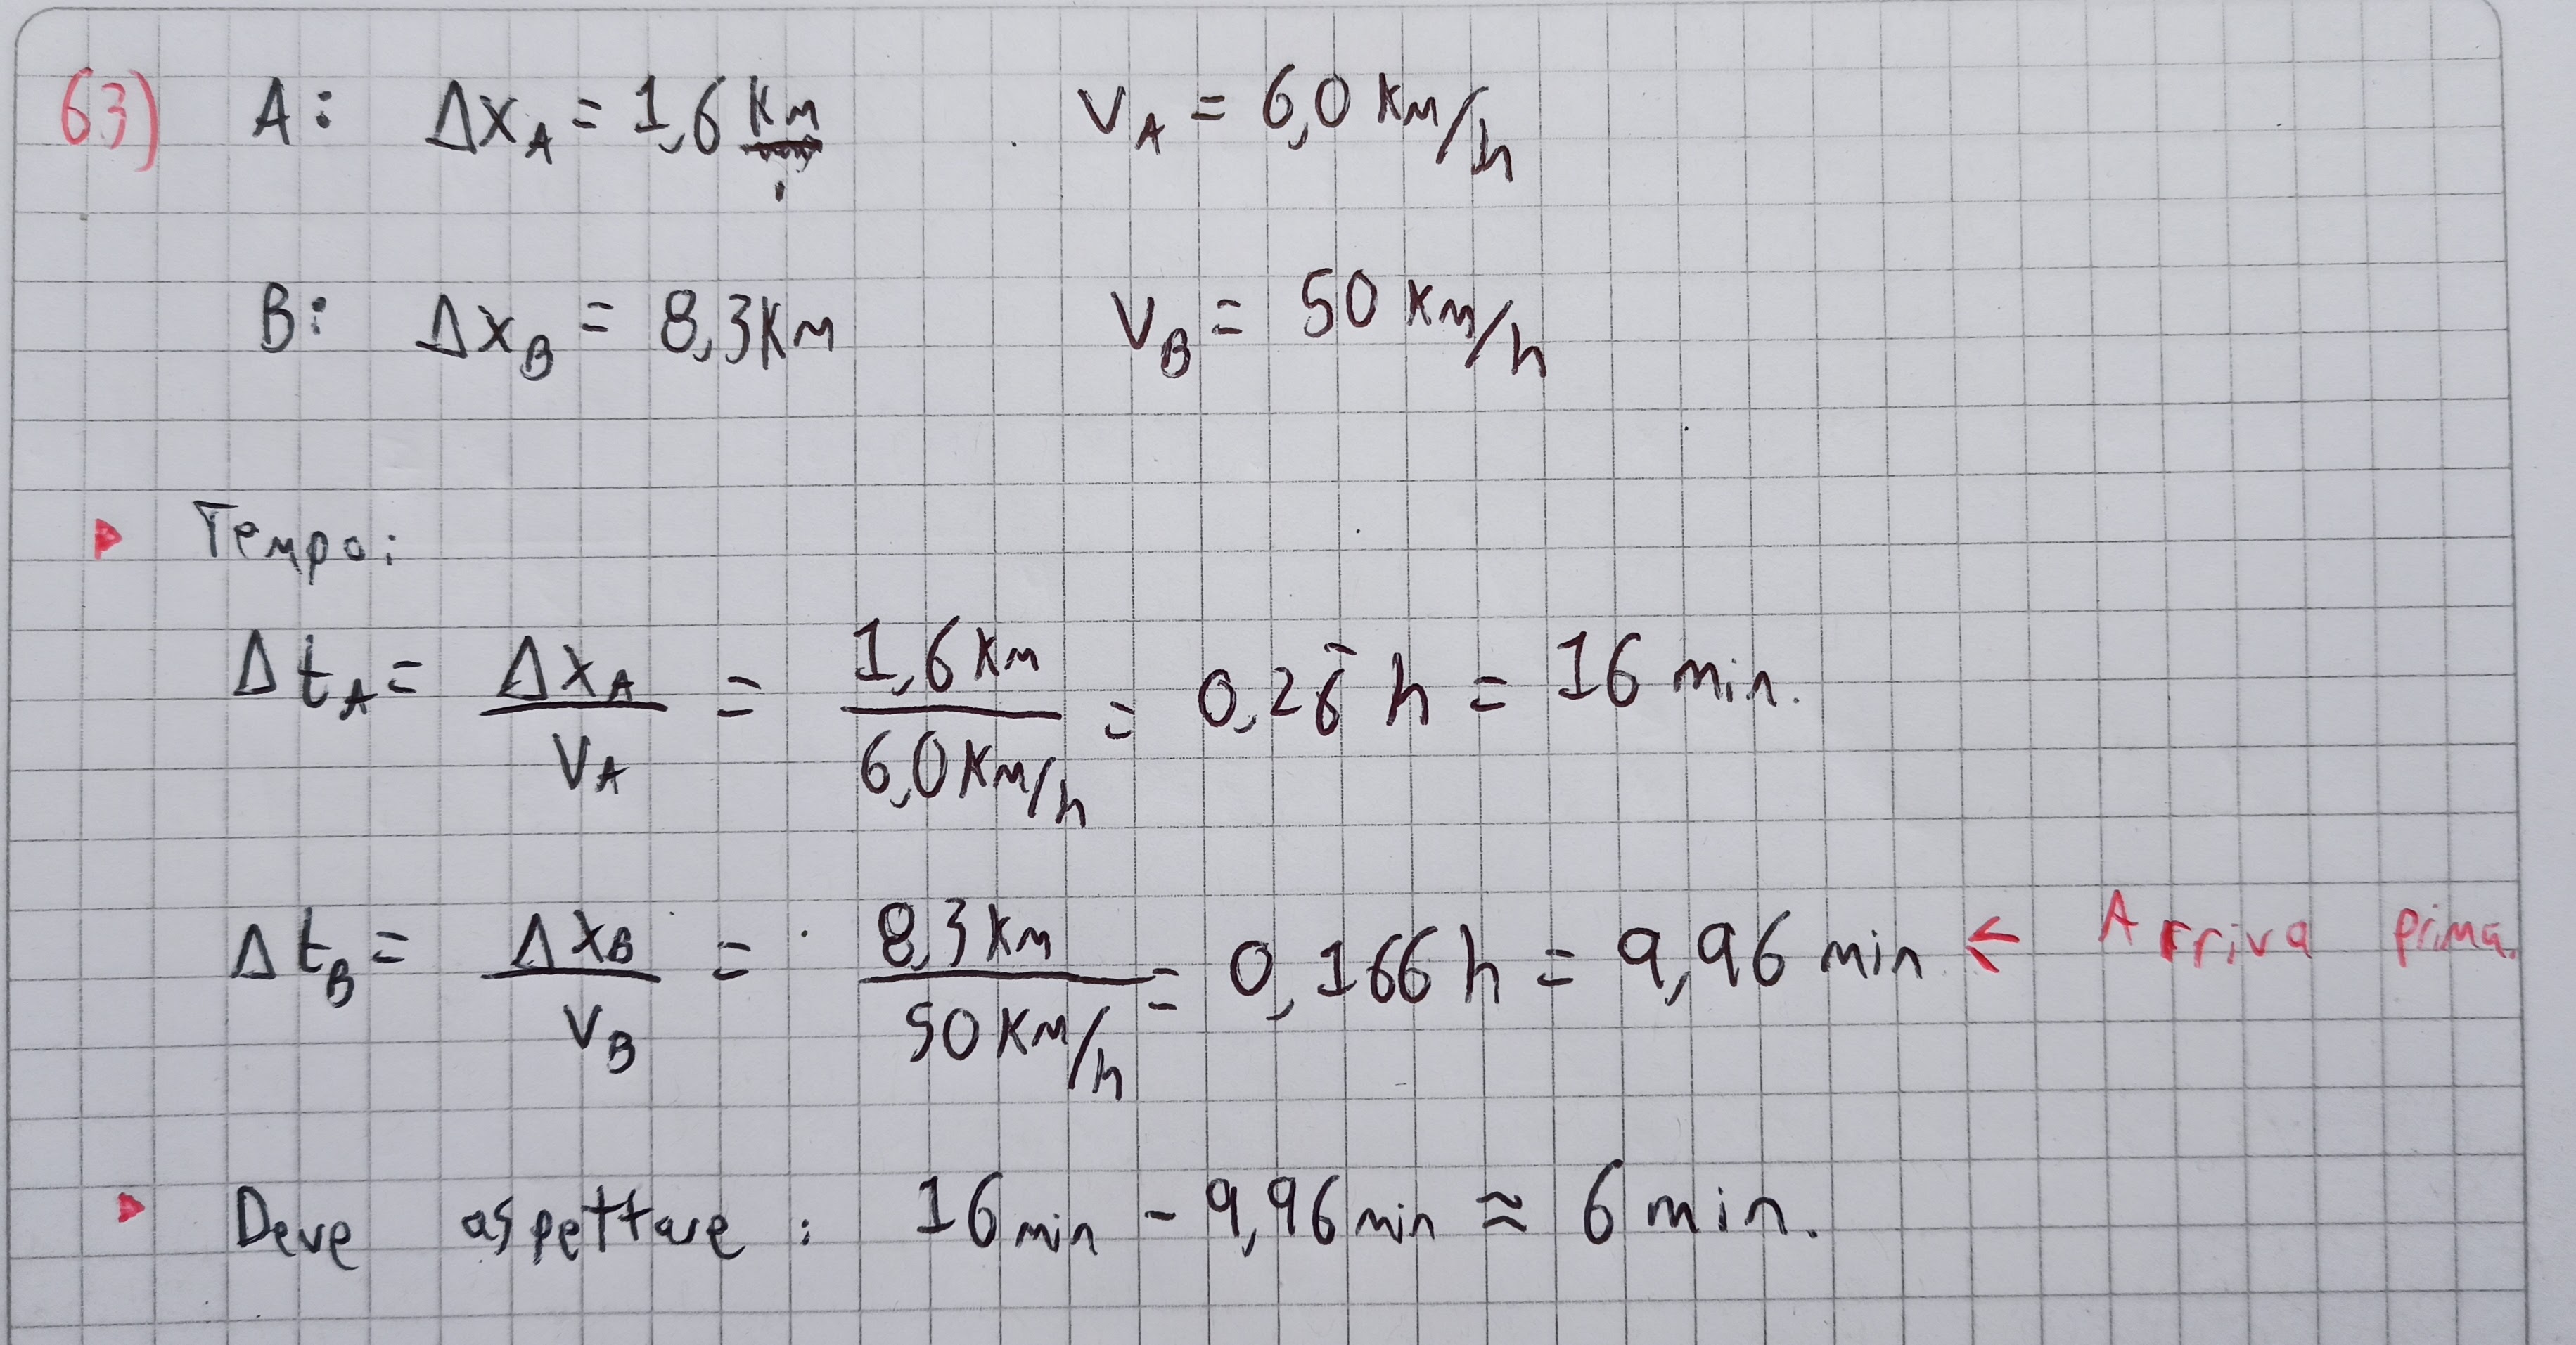 63) A: Δx_A = 1,6 Km V_A = 6,0 Km/h
B: Δx_B = 8,3 Km V_B = 50 Km/h
Tempo:
Δt_A = Δx_A / V_A = 1,6 Km / 6,0 Km/h = 0,26̄ h = 16 min.
Δt_B = Δx_B / V_B = 8,3 Km / 50 Km/h = 0,166 h = 9,96 min ← Arriva prima.
Deve aspettare : 16 min - 9,96 min ≈ 6 min.